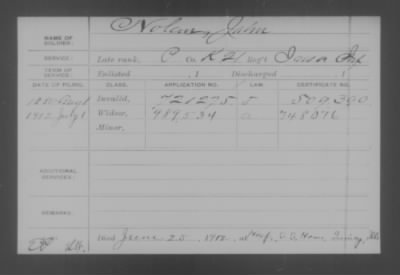 NAME OF SOLDIER: Nolen, John
SERVICE: Late rank, P Co. K 21 Reg't Iowa Inf
TERM OF SERVICE: Enlisted , 1 Discharged , 1
DATE OF FILING. CLASS. APPLICATION NO. LAW. CERTIFICATE NO.
Invalid, 721275 J 509390
1912 July 1 Widow, 989534 748076
Minor,
ADDITIONAL SERVICES:
REMARKS:
Died June 25, 1912, at Hosp. S.S. Home, Quincy, Ills